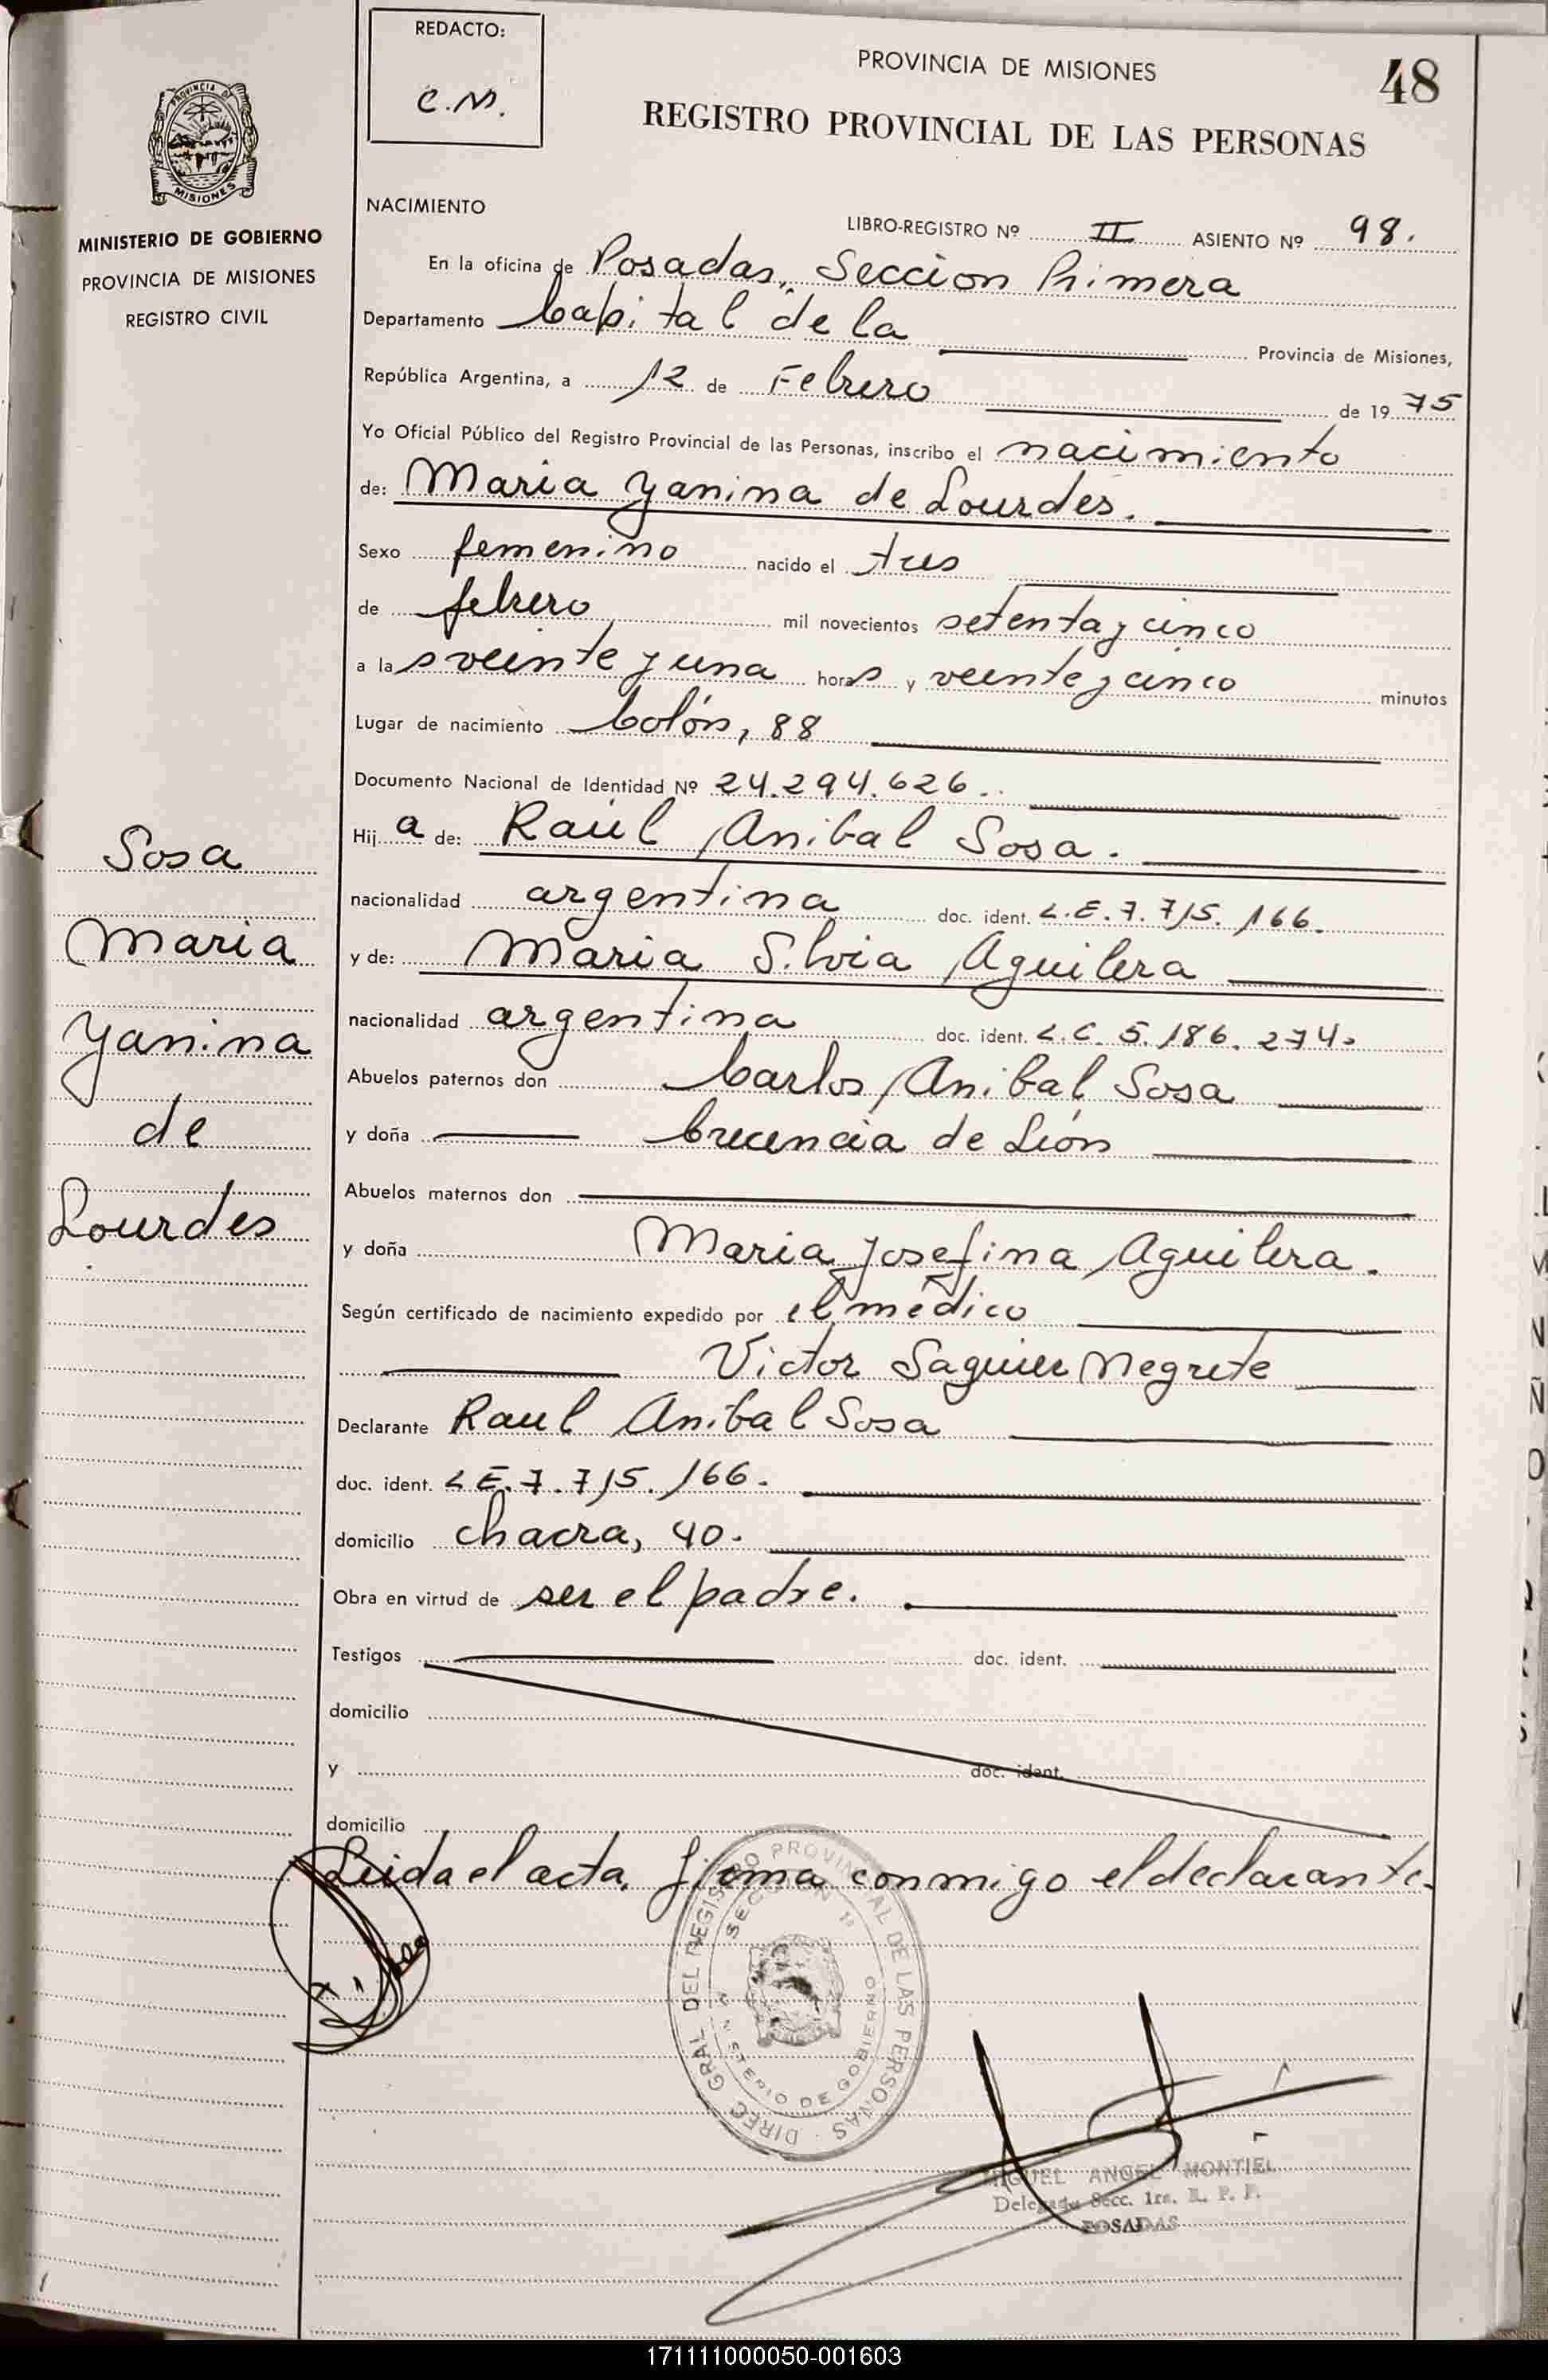 REDACTO:
C.M.
PROVINCIA DE MISIONES
48
REGISTRO PROVINCIAL DE LAS PERSONAS
PROVINCIA DE
MISIONES
MINISTERIO DE GOBIERNO
PROVINCIA DE MISIONES
REGISTRO CIVIL
NACIMIENTO
LIBRO-REGISTRO Nº II ASIENTO Nº 98.
En la oficina de Posadas, Seccion Primera
Departamento Capital de la Provincia de Misiones,
República Argentina, a 12 de Febrero de 1975
Yo Oficial Público del Registro Provincial de las Personas, inscribo el nacimiento
de: Maria Yanina de Lourdes.
Sexo femenino nacido el tres
de febrero mil novecientos setenta y cinco
a las veinte y una horas y veinte y cinco minutos
Lugar de nacimiento Colón, 88
Documento Nacional de Identidad Nº 24.294.626.
Hija de: Raúl Anibal Sosa.
nacionalidad argentina doc. ident. L.E. 7.715.166.
y de: Maria Silvia Aguilera
nacionalidad argentina doc. ident. L.C. 5.186.274.
Abuelos paternos don Carlos Anibal Sosa
y doña Crecencia de León
Abuelos maternos don
y doña Maria Josefina Aguilera.
Según certificado de nacimiento expedido por el médico
Victor Saguier Negrete
Declarante Raul Anibal Sosa
doc. ident. L.E. 7.715.166.
domicilio chacra, 40.
Obra en virtud de ser el padre.
Testigos doc. ident.
domicilio
y doc. ident.
domicilio
Leida el acta, firma conmigo el declarante.
Sosa
Maria
Yanina
de
Lourdes
DIREC. GRAL DEL REGISTRO PROVINCIAL DE LAS PERSONAS
SECCION 1ª
MINISTERIO DE GOBIERNO
MIGUEL ANGEL MONTIEL
Delegado Secc. 1ra. R. P. P.
POSADAS
171111000050-001603